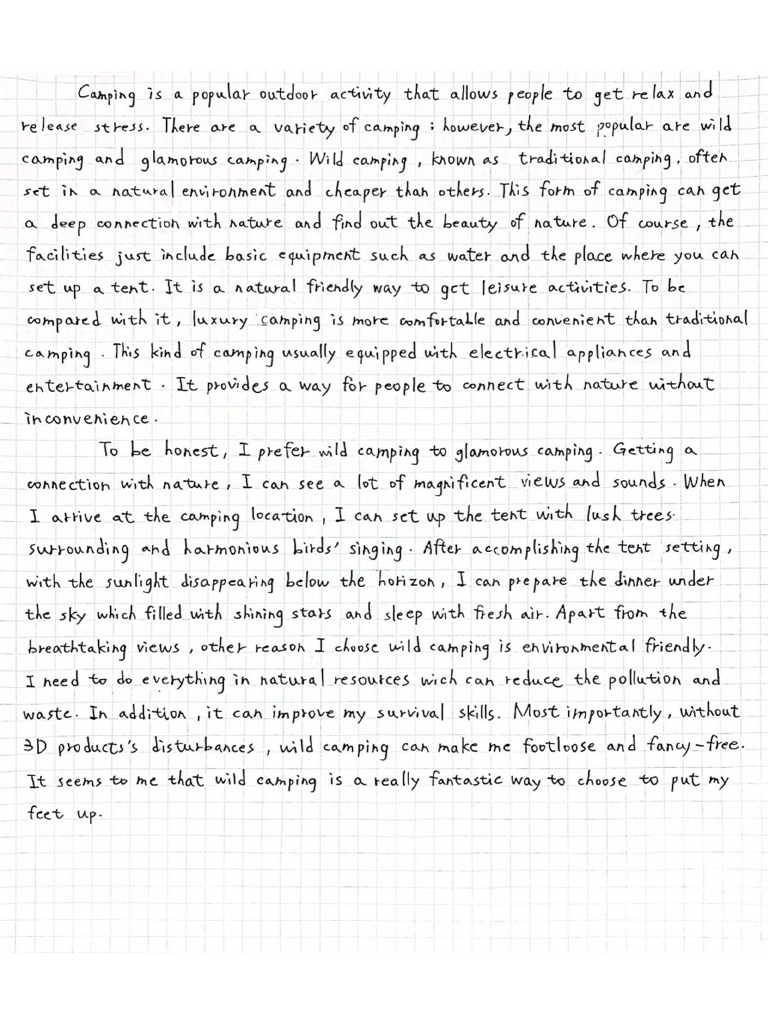 Camping is a popular outdoor activity that allows people to get relax and
release stress. There are a variety of camping ; however, the most popular are wild
camping and glamorous camping. Wild camping, known as traditional camping, often
set in a natural environment and cheaper than others. This form of camping can get
a deep connection with nature and find out the beauty of nature. Of course, the
facilities just include basic equipment such as water and the place where you can
set up a tent. It is a natural friendly way to get leisure activities. To be
compared with it, luxury camping is more comfortable and convenient than traditional
camping. This kind of camping usually equipped with electrical appliances and
entertainment. It provides a way for people to connect with nature without
inconvenience.
To be honest, I prefer wild camping to glamorous camping. Getting a
connection with nature, I can see a lot of magnificent views and sounds. When
I arrive at the camping location, I can set up the tent with lush trees
surrounding and harmonious birds' singing. After accomplishing the tent setting,
with the sunlight disappearing below the horizon, I can prepare the dinner under
the sky which filled with shining stars and sleep with fresh air. Apart from the
breathtaking views, other reason I choose wild camping is environmental friendly.
I need to do everything in natural resources wich can reduce the pollution and
waste. In addition, it can improve my survival skills. Most importantly, without
3D products's disturbances, wild camping can make me footloose and fancy-free.
It seems to me that wild camping is a really fantastic way to choose to put my
feet up.